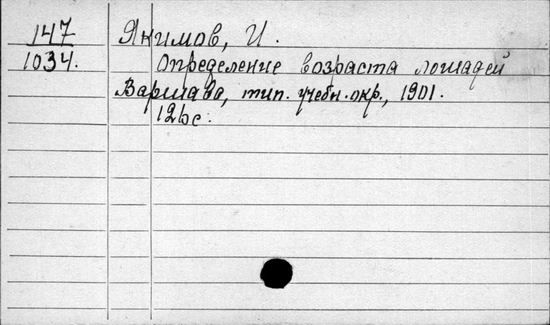 147
1034.
Якимов, И.
Определение возраста лошадей
Варшава, тип. учебн. окр., 1901.
12 с.